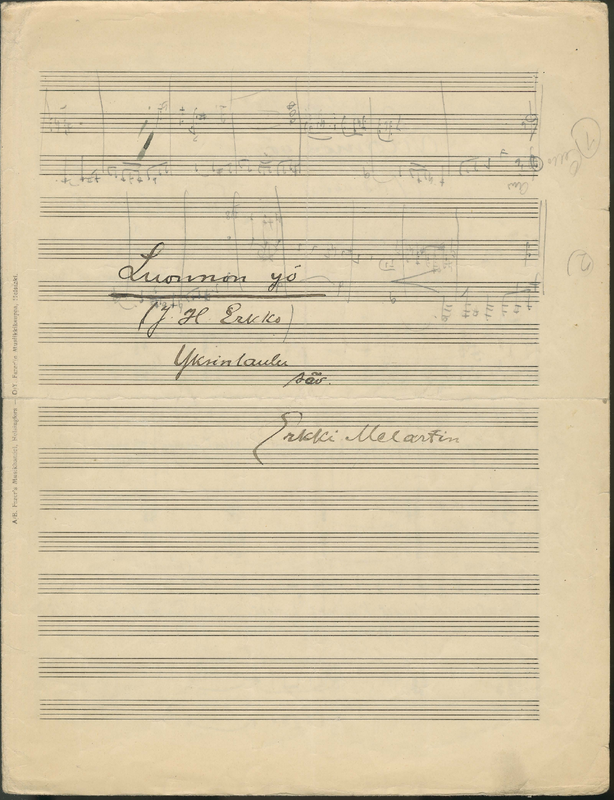 Luonnon yö
(J. H Erkko)
Yksinlaulu
säv.
Erkki Melartin
A/B. Fazer's Musikhandel, Helsingfors — O/Y. Fazer'in Musiikkikauppa, Helsinki.